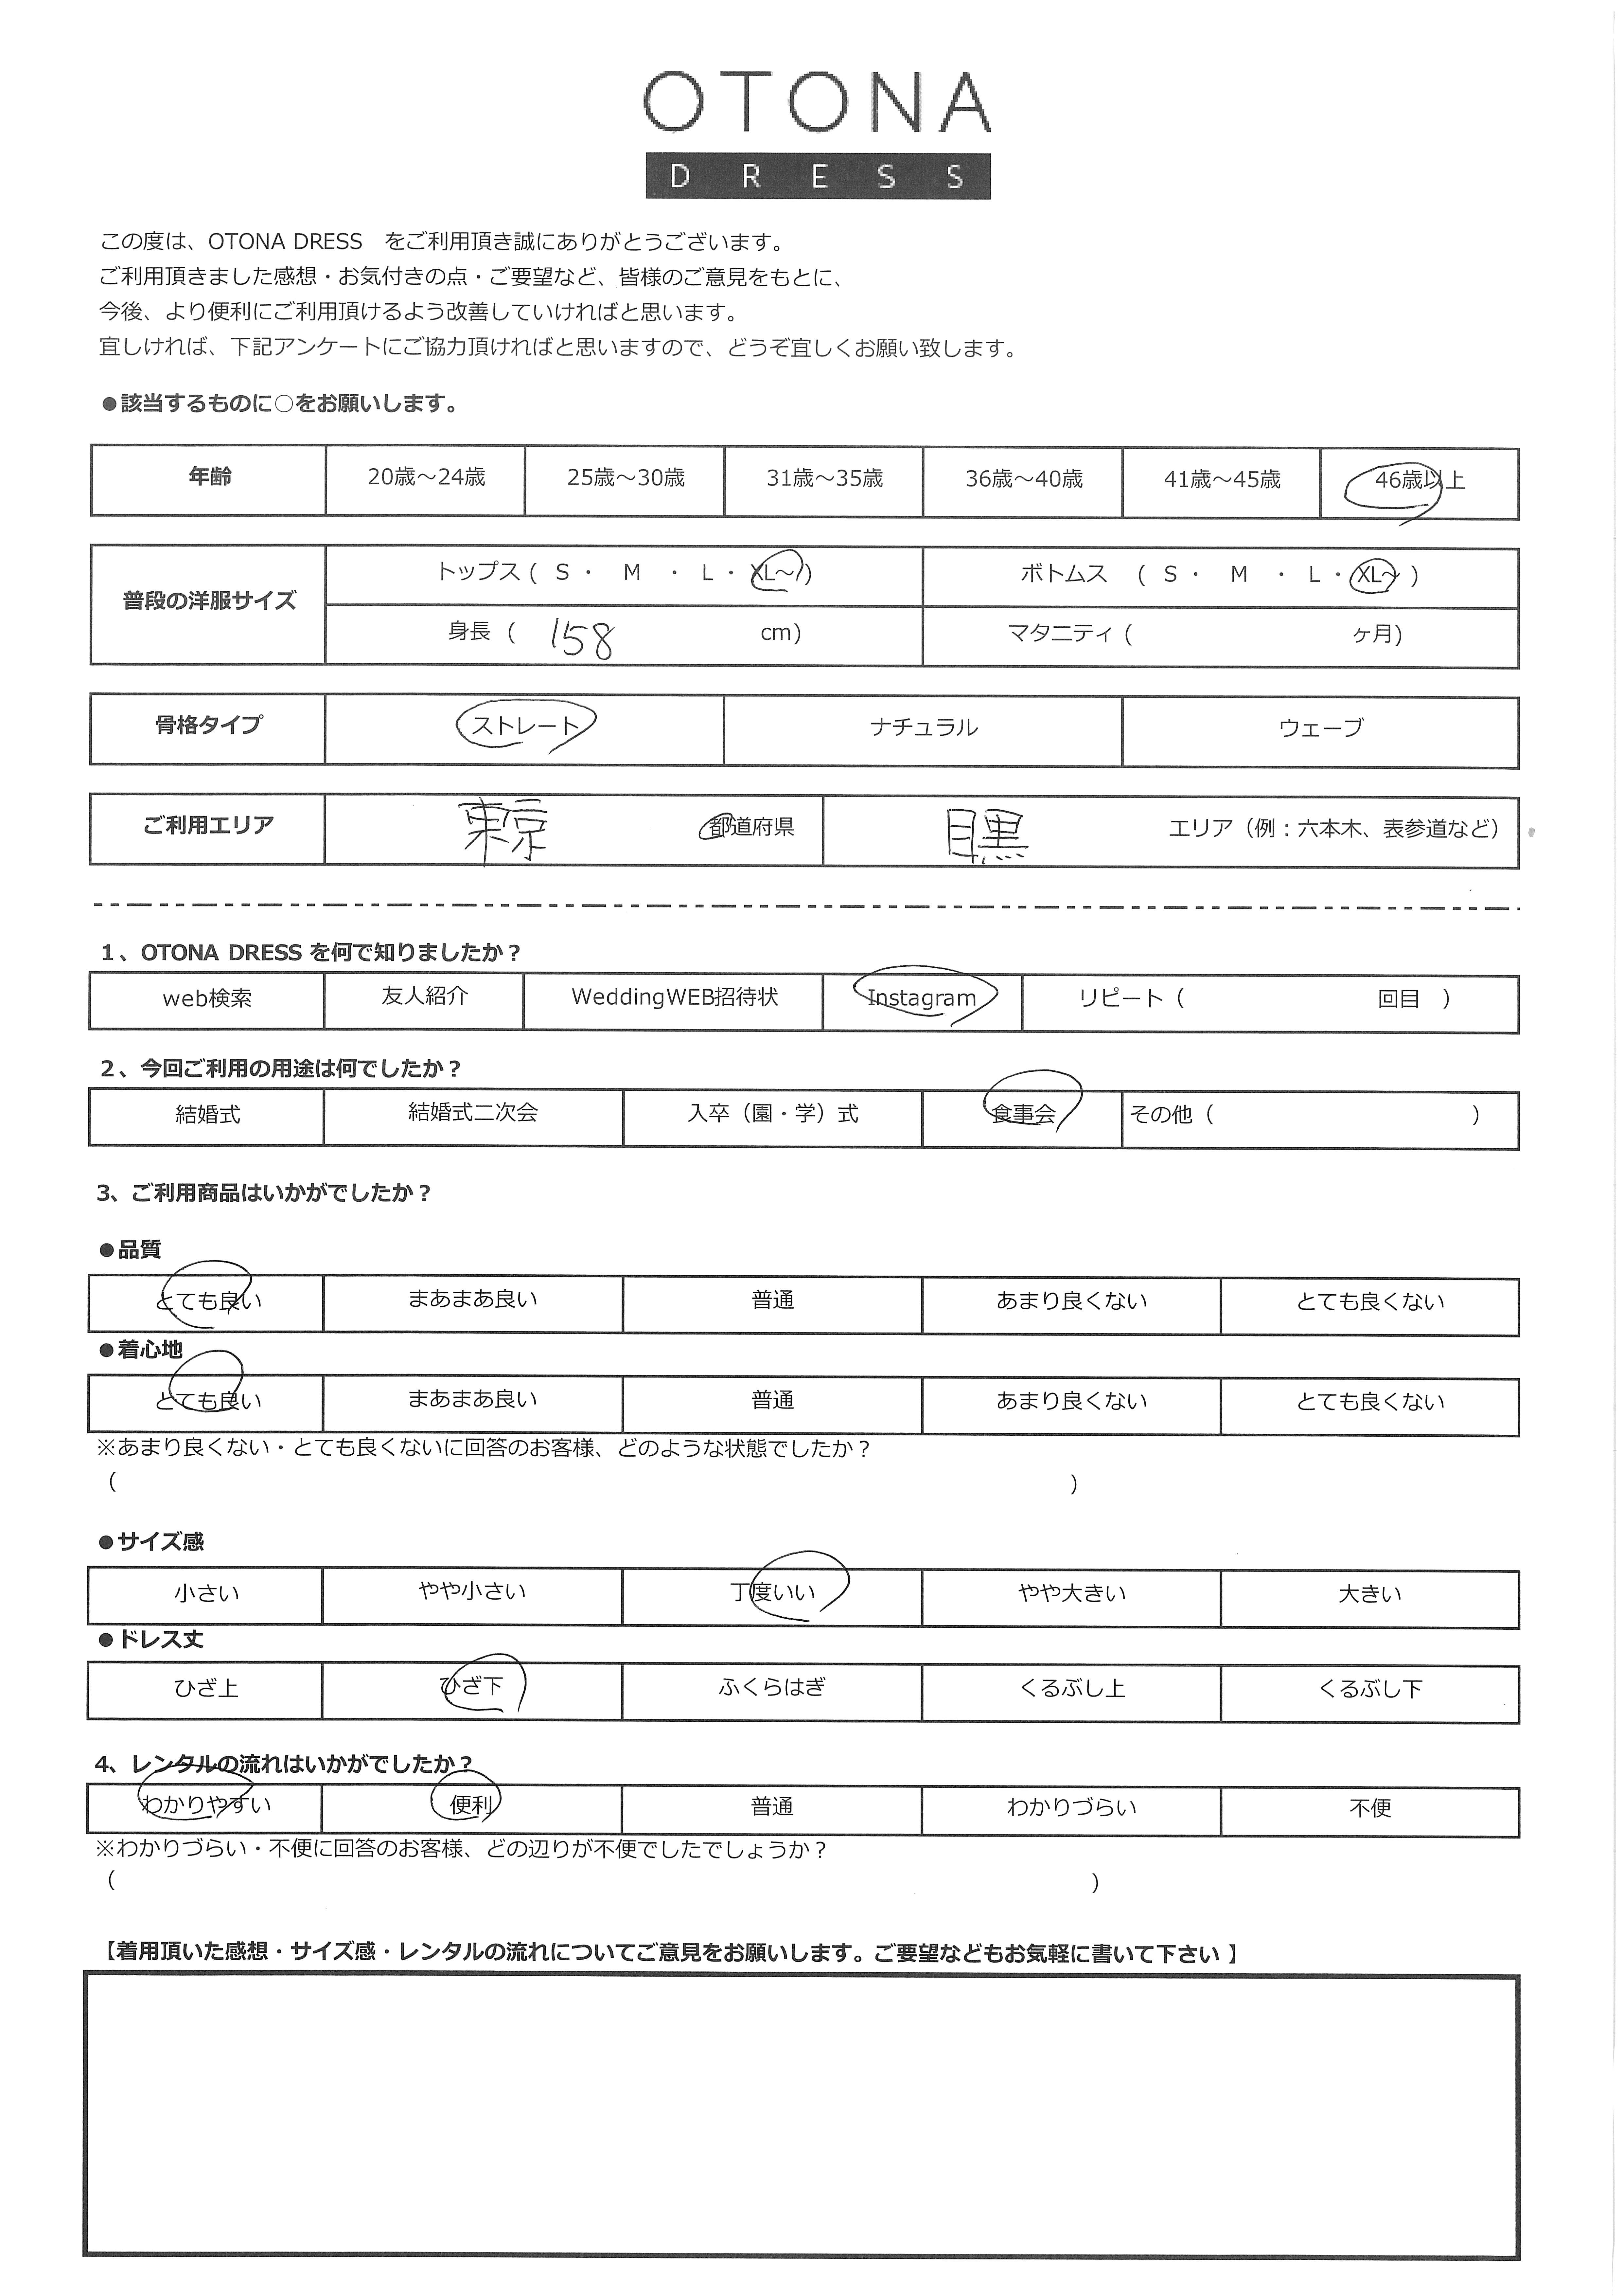 OTONA
DRESS
この度は、OTONA DRESS　をご利用頂き誠にありがとうございます。
ご利用頂きました感想・お気付きの点・ご要望など、皆様のご意見をもとに、
今後、より便利にご利用頂けるよう改善していければと思います。
宜しければ、下記アンケートにご協力頂ければと思いますので、どうぞ宜しくお願い致します。
●該当するものに○をお願いします。
年齢 20歳～24歳 25歳～30歳 31歳～35歳 36歳～40歳 41歳～45歳 46歳以上
普段の洋服サイズ トップス ( S ・ M ・ L ・ XL～ ) ボトムス ( S ・ M ・ L ・ XL～ )
身長 ( 158 cm) マタニティ ( ヶ月)
骨格タイプ ストレート ナチュラル ウェーブ
ご利用エリア 東京 都道府県 目黒 エリア（例：六本木、表参道など）
1、OTONA DRESS を何で知りましたか？
web検索 友人紹介 WeddingWEB招待状 Instagram リピート（ 回目 ）
2、今回ご利用の用途は何でしたか？
結婚式 結婚式二次会 入卒（園・学）式 食事会 その他（ ）
3、ご利用商品はいかがでしたか？
●品質
とても良い まあまあ良い 普通 あまり良くない とても良くない
●着心地
とても良い まあまあ良い 普通 あまり良くない とても良くない
※あまり良くない・とても良くないに回答のお客様、どのような状態でしたか？
（ ）
●サイズ感
小さい やや小さい 丁度いい やや大きい 大きい
●ドレス丈
ひざ上 ひざ下 ふくらはぎ くるぶし上 くるぶし下
4、レンタルの流れはいかがでしたか？
わかりやすい 便利 普通 わかりづらい 不便
※わかりづらい・不便に回答のお客様、どの辺りが不便でしたでしょうか？
（ ）
【着用頂いた感想・サイズ感・レンタルの流れについてご意見をお願いします。ご要望などもお気軽に書いて下さい 】